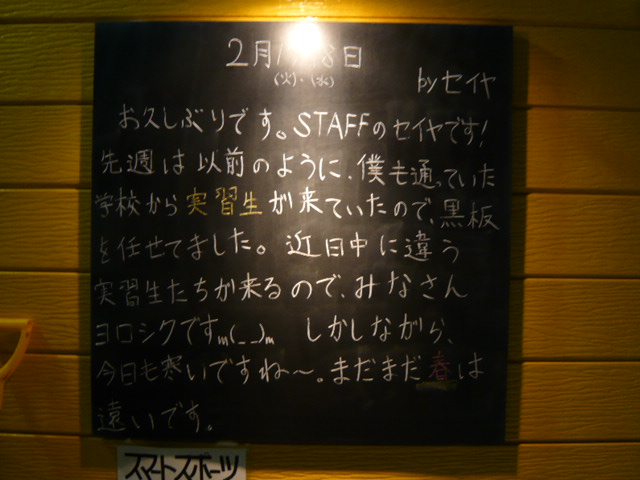 2月17,18日
(火)・(水)
byセイヤ
お久しぶりです。STAFFのセイヤです!
先週は以前のように、僕も通っていた
学校から実習生が来ていたので、黒板
を任せてました。近日中に違う
実習生たちが来るので、みなさん
ヨロシクですm(_ _)m しかしながら、
今日も寒いですね〜。まだまだ春は
遠いです。
スマートスポーツ